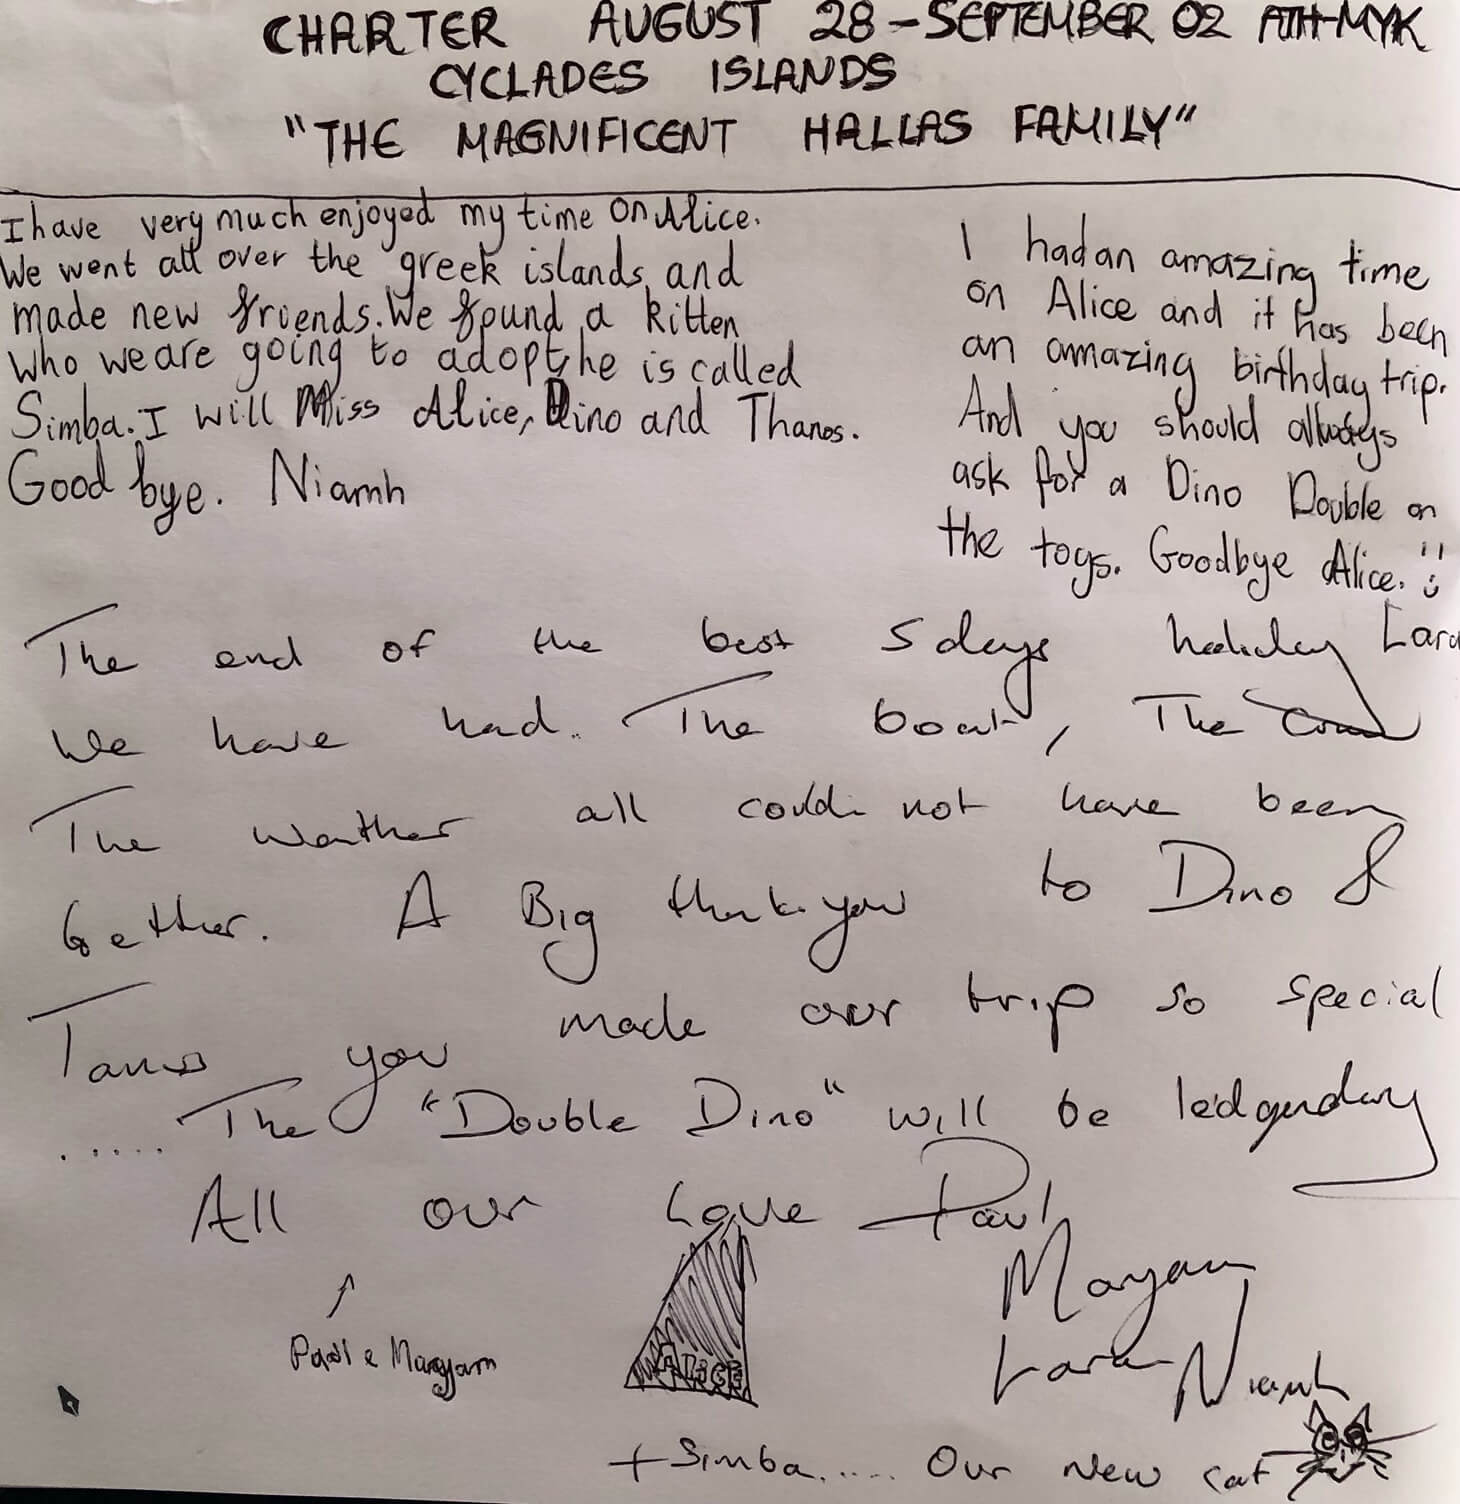 CHARTER AUGUST 28-SEPTEMBER 02 ATH-MYK
CYCLADES ISLANDS
"THE MAGNIFICENT HALLAS FAMILY"
I have very much enjoyed my time on Alice.
We went all over the greek islands, and
made new friends. We found a kitten
who we are going to adopt, he is called
Simba. I will Miss Alice, Dino and Thanos.
Good bye. Niamh
I had an amazing time
on Alice and it has been
an amazing birthday trip.
And you should always
ask for a Dino Double on
the toys. Goodbye Alice. :)
Lara
The end of the best 5 days holiday
we have had. The boat, The
The weather all could not have been
Gether. A Big thank you to Dino &
you made our trip so special
..... The "Double Dino" will be ledgendary
All our Love Paul
Maryam
Lara Niamh
Paul & Maryam
ALICE
+ Simba..... Our New cat